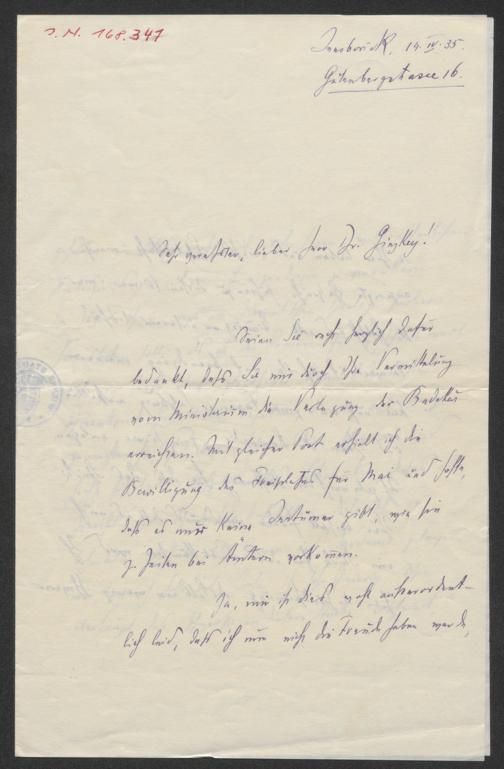 J. N. 168.347
Innsbruck, 19. IV. 35.
Gutenbergstrasse 16.
Sehr verehrter, lieber Herr Dr. Ginzkey!
Seien Sie recht herzlich dafür
bedankt, dass Sie mir durch Ihre Vermittlung
vom Ministerium die Verlegung der Badekur
erreichten. Mit gleicher Post erhielt ich die
Bewilligung des Freiplatzes für Mai und hoffe,
daß es nun keine Irrtümer gibt, wie sie
z. Zeiten bei Ämtern vorkommen.
Ja, mir ist dies recht außerordent-
lich leid, daß ich nun nicht die Freude haben werde,